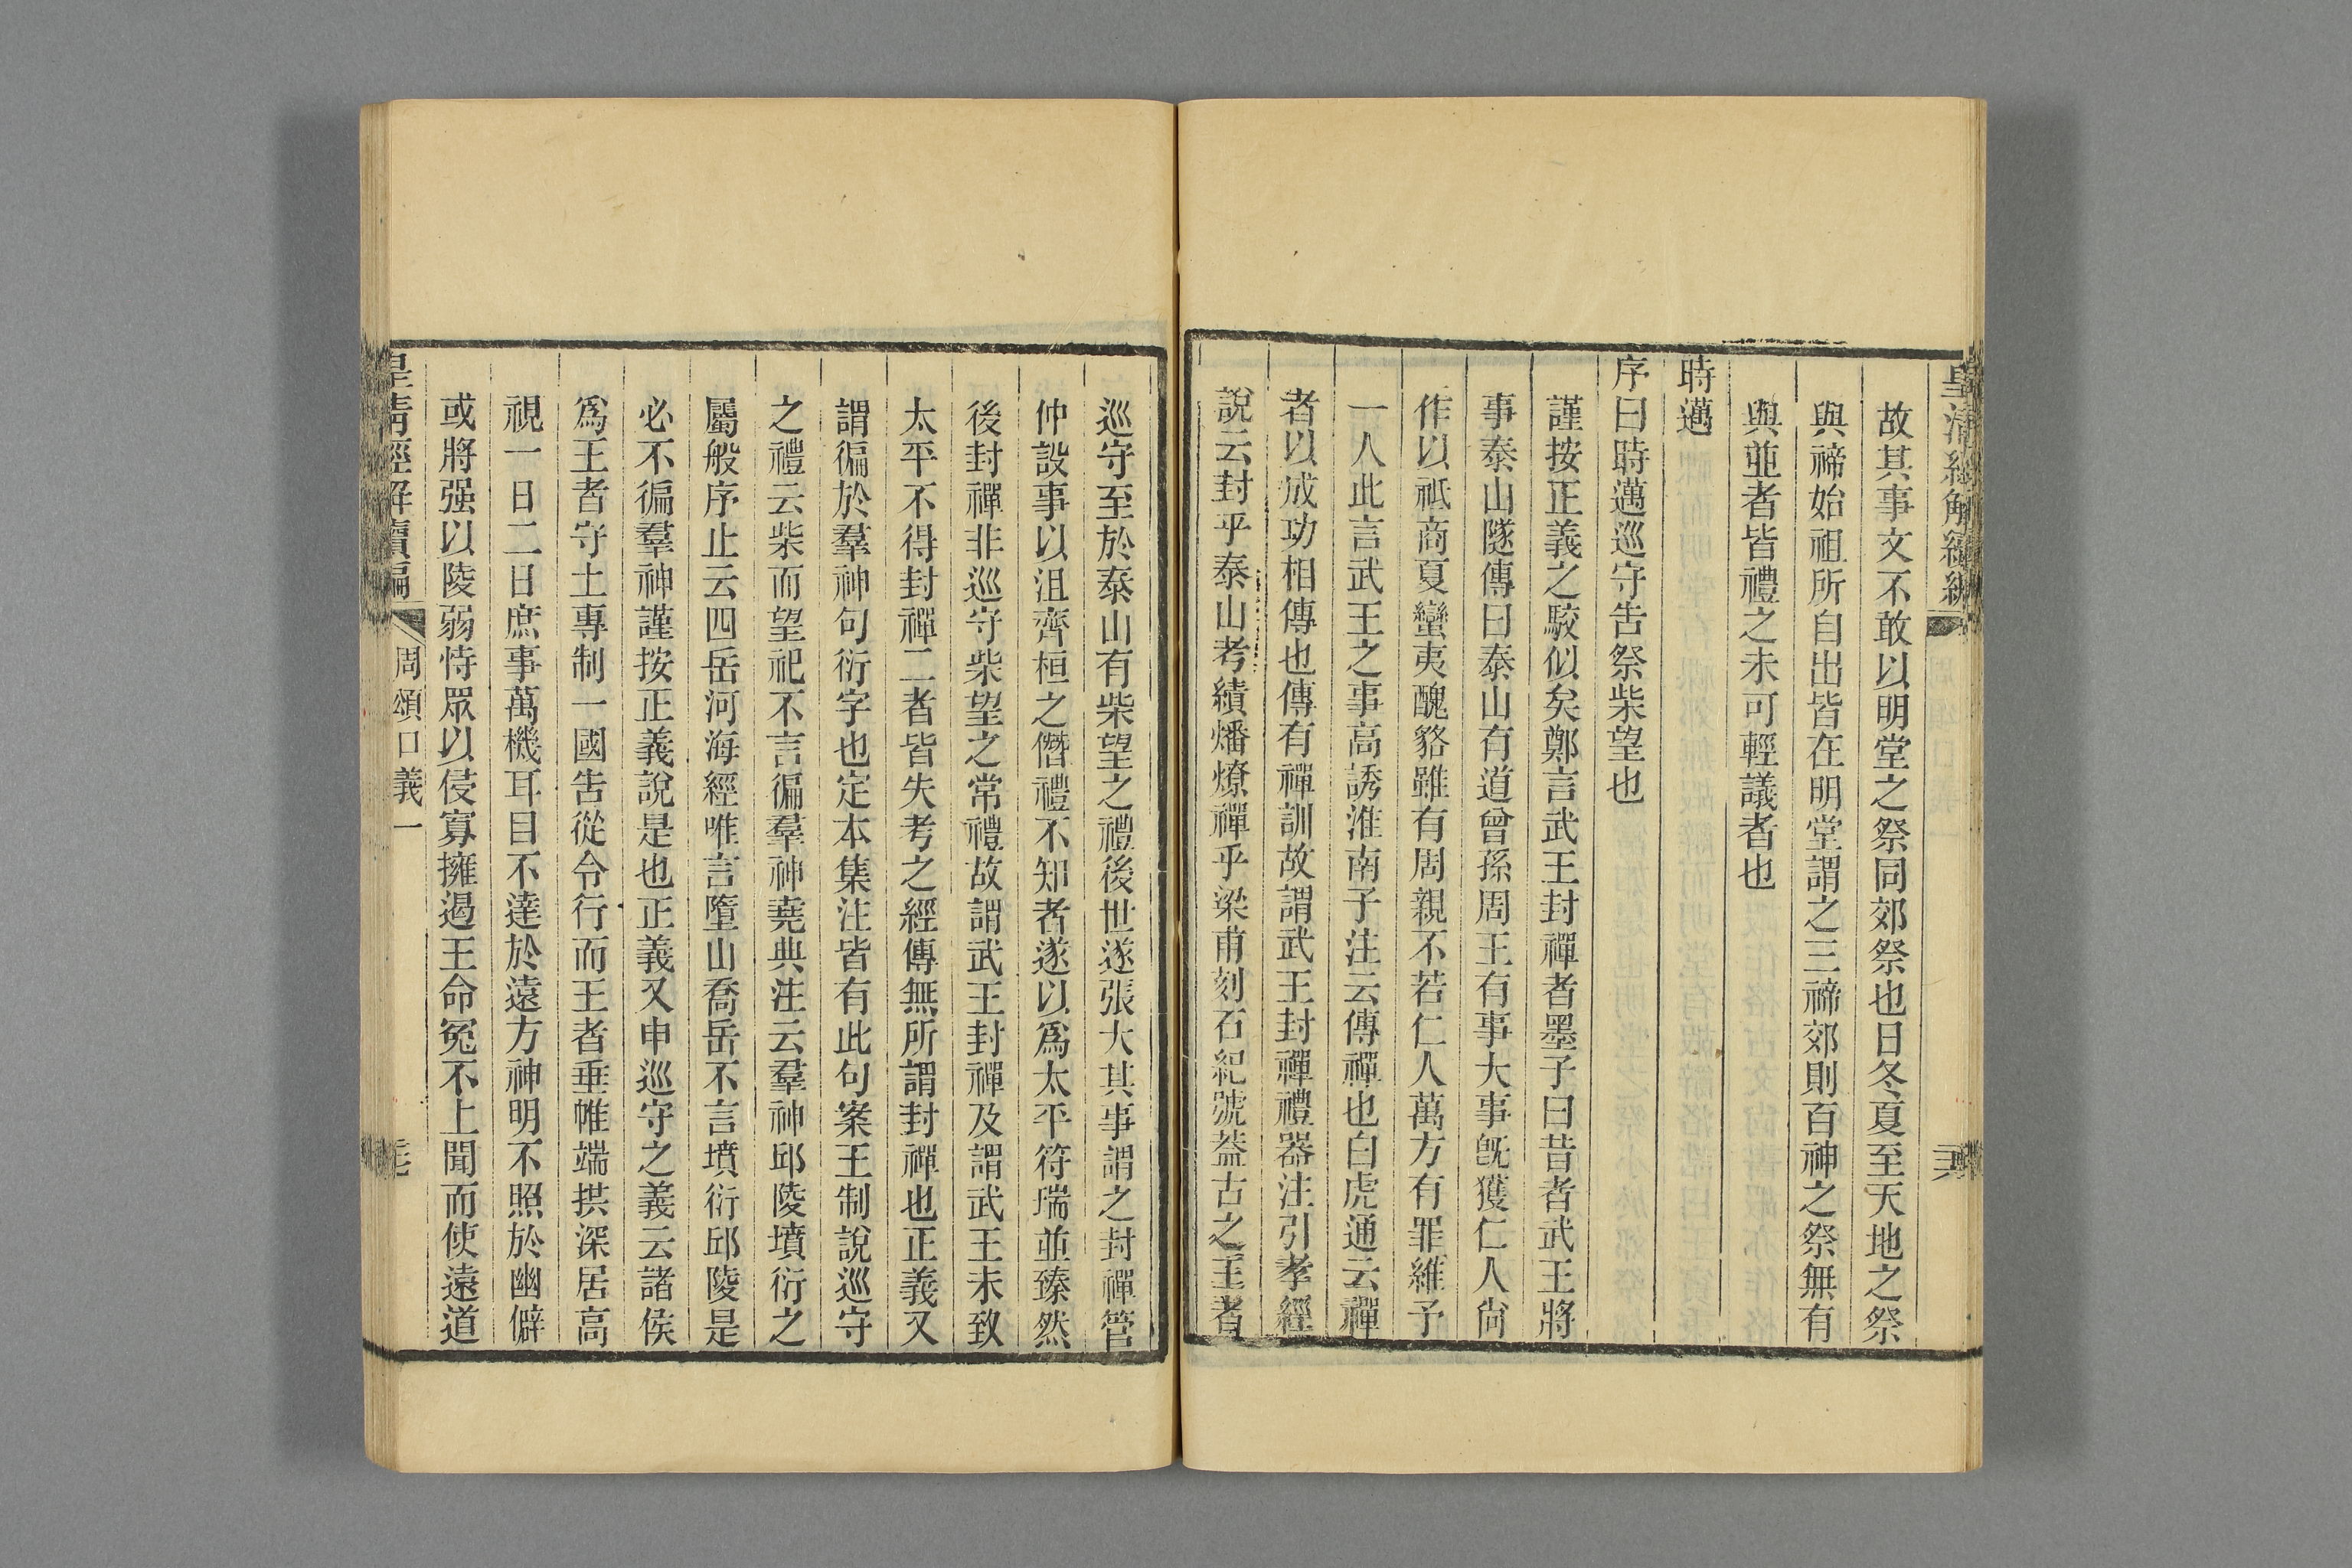 皇清經解續編
故其事文不敢以明堂之祭同郊祭也日冬夏至天地之祭
與禘始祖所自出皆在明堂謂之三禘郊則百神之祭無有
與並者皆禮之未可輕議者也
時邁
序曰時邁巡守告祭柴望也
謹按正義之駮似矣鄭言武王封禪者墨子曰昔者武王將
事泰山隧傳曰泰山有道曾孫周王有事大事既獲仁人尙
作以祗商夏蠻夷醜貉雖有周親不若仁人萬方有罪維予
一人此言武王之事高誘淮南子注云傳禪也白虎通云禪
者以成功相傳也傳有禪訓故謂武王封禪禮器注引孝經
說云封乎泰山考績燔燎禪乎梁甫刻石紀號葢古之王者
巡守至於泰山有柴望之禮後世遂張大其事謂之封禪管
仲設事以沮齊桓之僭禮不知者遂以爲太平符瑞並臻然
後封禪非巡守柴望之常禮故謂武王封禪及謂武王未致
太平不得封禪二者皆失考之經傳無所謂封禪也正義又
謂徧於羣神句衍字也定本集注皆有此句案王制說巡守
之禮云柴而望祀不言徧羣神堯典注云羣神邱陵墳衍之
屬般序止云四岳河海經唯言墮山喬岳不言墳衍邱陵是
必不徧羣神謹按正義說是也正義又申巡守之義云諸侯
爲王者守土專制一國告從令行而王者垂帷端拱深居高
視一日二日庶事萬機耳目不達於遠方神明不照於幽僻
或將强以陵弱恃眾以侵寡擁遏王命冤不上聞而使遠道
皇清經解續編 周頌口義一